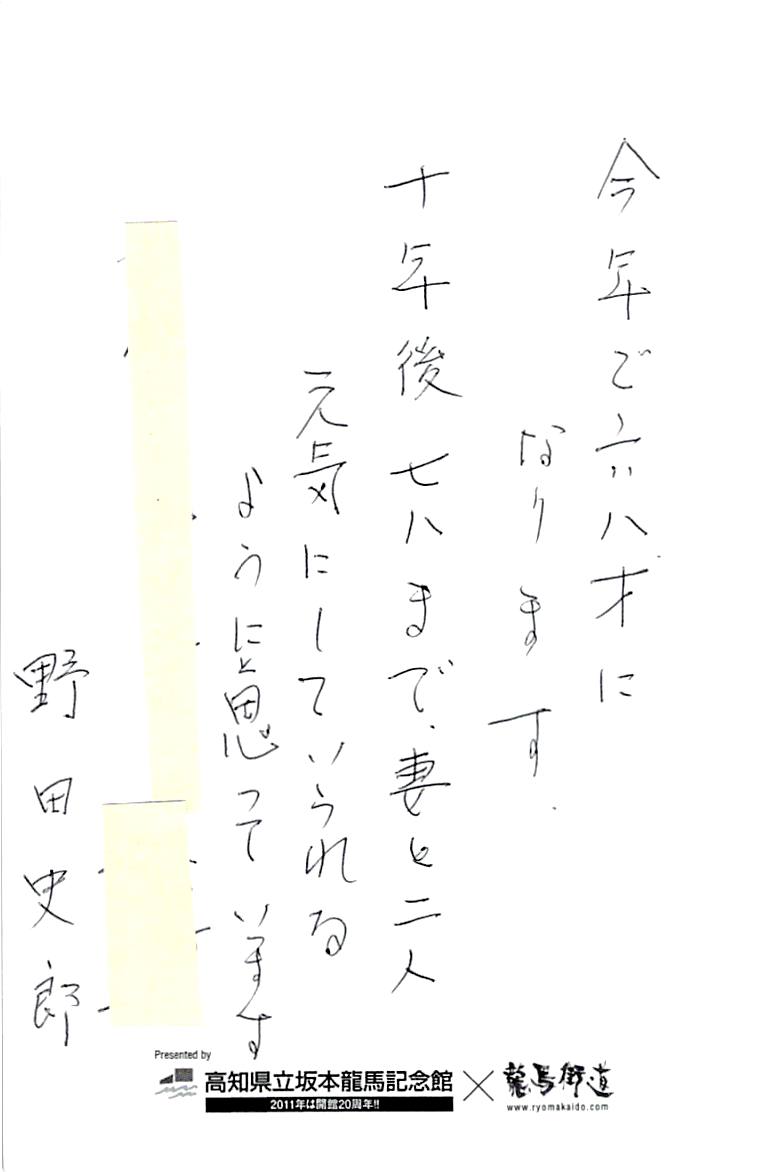 今年で六八才に
なります.
十年後七八まで、妻と二人
元気にしていられる
ようにと思っています
野田史郎
Presented by
高知県立坂本龍馬記念館×龍馬街道
2011年は開館20周年!!
www.ryomakaido.com